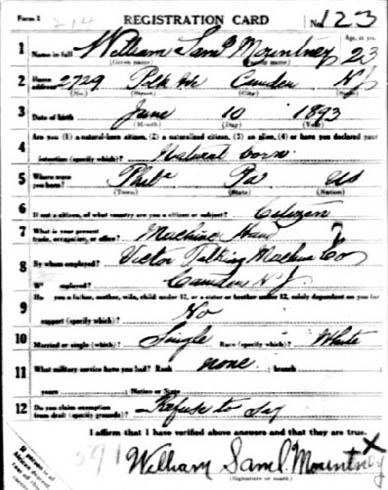 Form 1 214 REGISTRATION CARD No. 123
1 Name in full William Saml Mountney Age, in yrs. 23
(Given name) (Family name)
2 Home address 2729 Polk Ave Camden NJ
(No.) (Street) (City) (State)
3 Date of birth June 10 1893
(Month) (Day) (Year)
4 Are you (1) a natural-born citizen, (2) a naturalized citizen, (3) an alien, (4) or have you declared your
intention (specify which)? Natural born
5 Where were you born? Phila Pa
(Town) (State) (Nation)
6 If not a citizen, of what country are you a citizen or subject? Citizen
7 What is your present trade, occupation, or office? Machine Hand
8 By whom employed? Victor Talking Machine Co
W employed? Camden N J.
9 Ha you a father, mother, wife, child under 12, or a sister or brother under 12, solely dependent on you for
support (specify which)? No
10 Married or single (which)? Single Race (specify which)? White
11 What military service have you had? Rank none branch
years Nation or State
12 Do you claim exemption from draft (specify grounds)? Refuse to Say
I affirm that I have verified above answers and that they are true.
591 William Saml. Mountney X
(Signature or mark)
If person is of